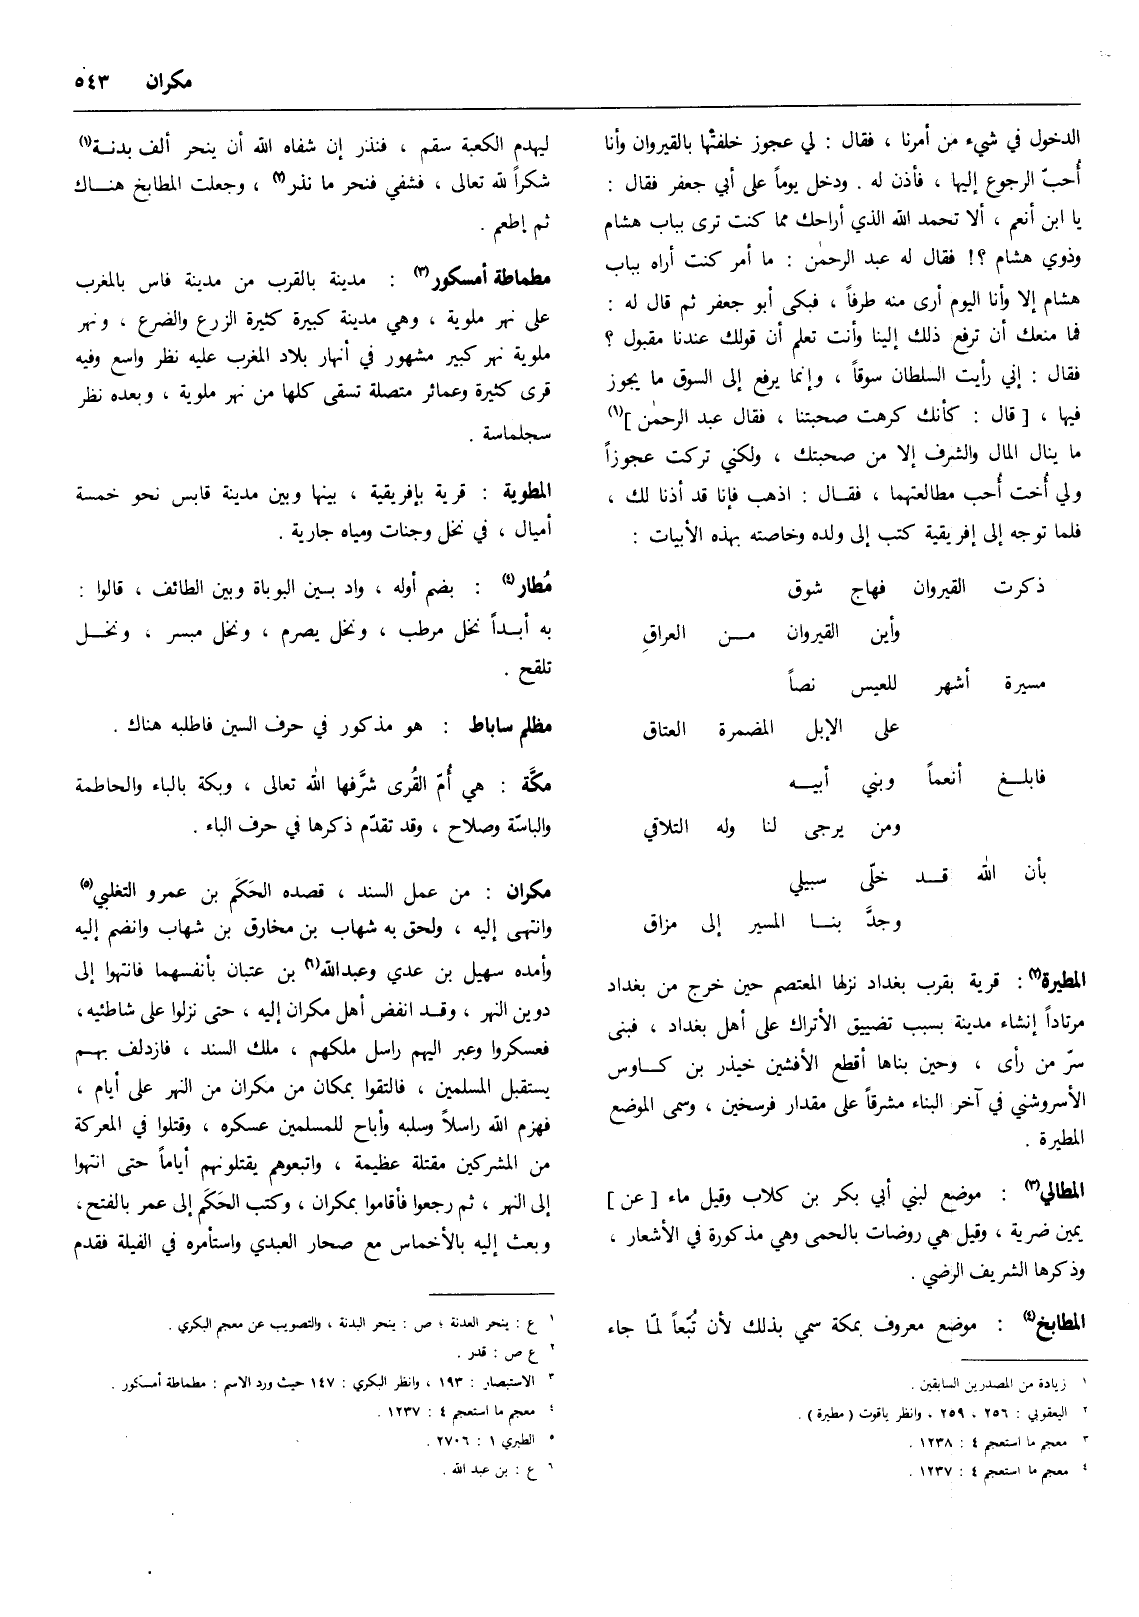 مكران ٥٤٣
الدخول في شيء من أمرنا ، فقال : لي عجوز خلفتُها بالقيروان وأنا
أُحبّ الرجوع إليها ، فأذن له . ودخل يوماً على أبي جعفر فقال :
يا ابن أنعم ، ألا تحمد الله الذي أراحك مما كنت ترى بباب هشام
وذوي هشام ؟! فقال له عبد الرحمٰن : ما أمر كنت أراه بباب
هشام إلا وأنا اليوم أرى منه طرفاً ، فبكى أبو جعفر ثم قال له :
فما منعك أن ترفع ذلك إلينا وأنت تعلم أن قولك عندنا مقبول ؟
فقال : إني رأيت السلطان سوقاً ، وإنما يرفع إلى السوق ما يجوز
فيها ، [ قال : كأنك كرهت صحبتنا ، فقال عبد الرحمٰن ](١)
ما ينال المال والشرف إلا من صحبتك ، ولكني تركت عجوزاً
ولي أُخت أُحب مطالعتهما ، فقال : اذهب فإنا قد أذنا لك ،
فلما توجه إلى إفريقية كتب إلى ولده وخاصته بهذه الأبيات :
ذكرت القيروان فهاج شوق
وأين القيروان من العراقِ
مسيرة أشهر للعيس نصاً
على الإبل المضمرة العتاق
فابلغ أنعماً وبني أبيه
ومن يرجى لنا وله التلاقي
بأن الله قد خلّى سبيلي
وجدَّ بنا المسير إلى مزاق
المطيرة(٢) : قرية بقرب بغداد نزلها المعتصم حين خرج من بغداد
مرتاداً إنشاء مدينة بسبب تضييق الأتراك على أهل بغداد ، فبنى
سرّ من رأى ، وحين بناها أقطع الأفشين خيذر بن كاوس
الأسروشني في آخر البناء مشرقاً على مقدار فرسخين ، وسمى الموضع
المطيرة .
المطالي(٣) : موضع لبني أبي بكر بن كلاب وقيل ماء [ عن ]
يمين ضرية ، وقيل هي روضات بالحمى وهي مذكورة في الأشعار ،
وذكرها الشريف الرضي .
المطابخ(٤) : موضع معروف بمكة سمي بذلك لأن تُبّعاً لمّا جاء
١ زيادة من المصدرين السابقين .
٢ اليعقوبي : ٢٥٦ ، ٢٥٩ ، وانظر ياقوت ( مطيرة ) .
٣ معجم ما استعجم ٤ : ١٢٣٨ .
٤ معجم ما استعجم ٤ : ١٢٣٧ .
ليهدم الكعبة سقم ، فنذر إن شفاه الله أن ينحر ألف بدنة(١)
شكراً لله تعالى ، فشفي فنحر ما نذر(٢) ، وجعلت المطابخ هناك
ثم إطعم .
مطماطة أمسكور(٣) : مدينة بالقرب من مدينة فاس بالمغرب
على نهر ملوية ، وهي مدينة كبيرة كثيرة الزرع والضرع ، ونهر
ملوية نهر كبير مشهور في أنهار بلاد المغرب عليه نظر واسع وفيه
قرى كثيرة وعمائر متصلة تسقى كلها من نهر ملوية ، وبعده نظر
سجلماسة .
المطوية : قرية بإفريقية ، بينها وبين مدينة قابس نحو خمسة
أميال ، في نخل وجنات ومياه جارية .
مُطار(٤) : بضم أوله ، واد بين البوباة وبين الطائف ، قالوا :
به أبداً نخل مرطب ، ونخل يصرم ، ونخل مبسر ، ونخل
تلقح .
مظلم ساباط : هو مذكور في حرف السين فاطلبه هناك .
مكَّة : هي أُمّ القُرى شرَّفها الله تعالى ، وبكة بالباء والحاطمة
والباسّة وصلاح ، وقد تقدّم ذكرها في حرف الباء .
مكران : من عمل السند ، قصده الحَكَم بن عمرو التغلبي(٥)
وانتهى إليه ، ولحق به شهاب بن مخارق بن شهاب وانضم إليه
وأمده سهيل بن عدي وعبدالله(٦) بن عتبان بأنفسهما فانتهوا إلى
دوين النهر ، وقد انفض أهل مكران إليه ، حتى نزلوا على شاطئيه ،
فعسكروا وعبر اليهم راسل ملكهم ، ملك السند ، فازدلف بهم
يستقبل المسلمين ، فالتقوا بمكان من مكران من النهر على أيام ،
فهزم الله راسلاً وسلبه وأباح للمسلمين عسكره ، وقتلوا في المعركة
من المشركين مقتلة عظيمة ، واتبعوهم يقتلونهم أياماً حتى انتهوا
إلى النهر ، ثم رجعوا فأقاموا بمكران ، وكتب الحَكَم إلى عمر بالفتح ،
وبعث إليه بالأخماس مع صحار العبدي واستأمره في الفيلة فقدم
١ ع : ينحر العدنة ؛ ص : ينحر البدنة ، والتصويب عن معجم البكري .
٢ ع ص : قدر .
٣ الاستبصار : ١٩٣ ، وانظر البكري : ١٤٧ حيث ورد الاسم : مطماطة أمسكور .
٤ معجم ما استعجم ٤ : ١٢٣٧ .
٥ الطبري ١ : ٢٧٠٦ .
٦ ع : بن عبد الله .